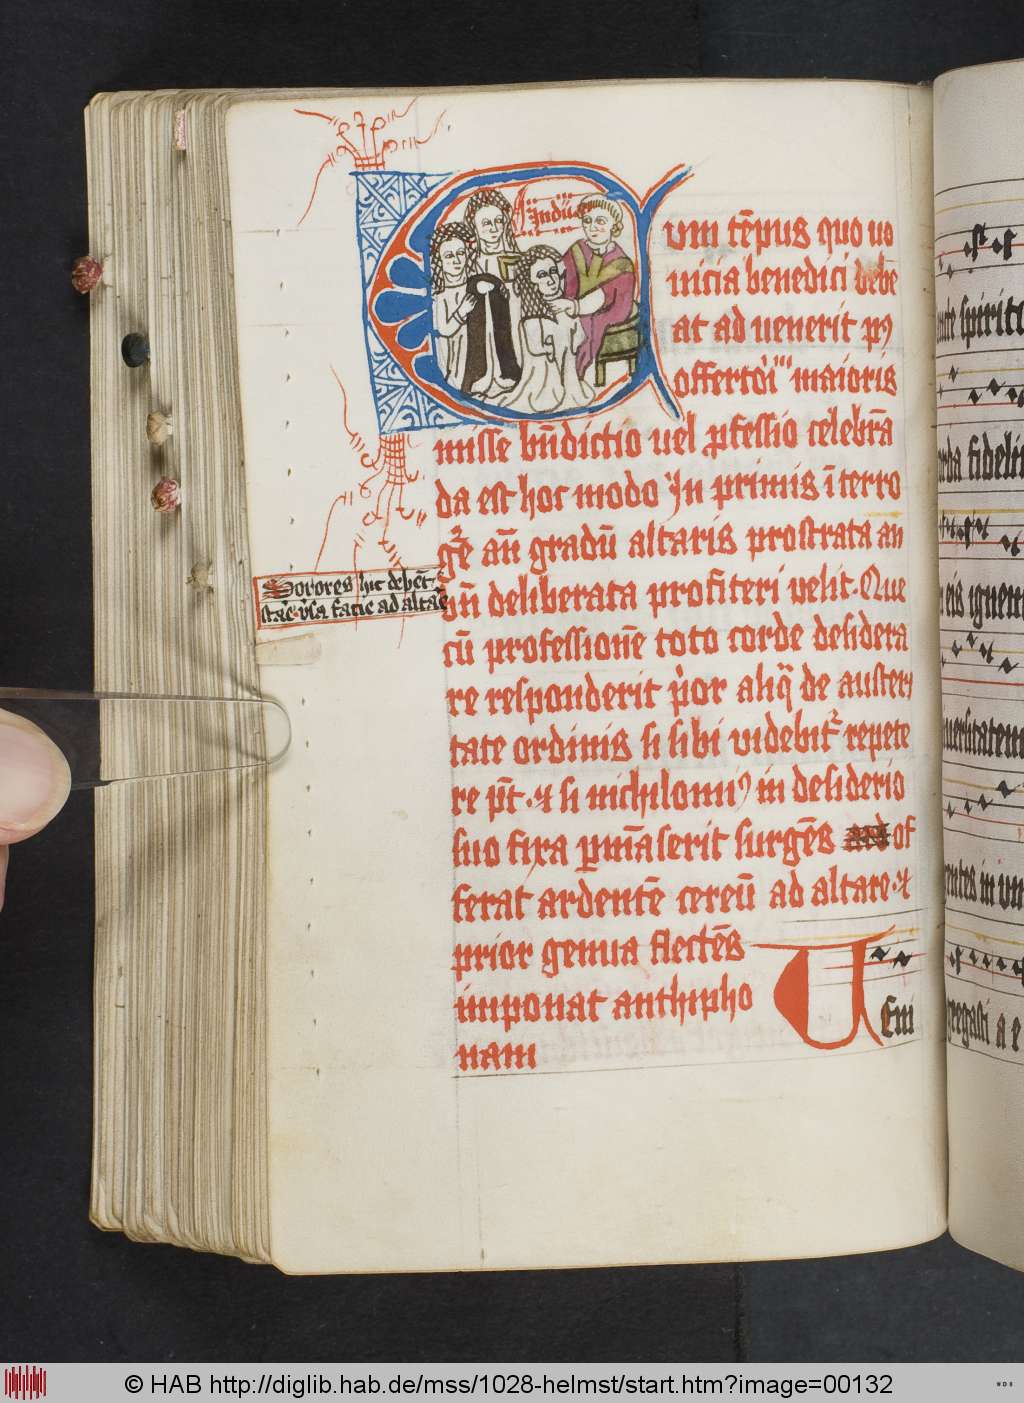 Indu
Cum te̅pus quo no
uicia benedici debe
at ad uenerit pꝯ
offerto̍i maioris
misse bn̅dictio uel ꝓfessio celebra̅
da est hoc modo In primis i̅terro
an̅ gradu̅ altaris prostrata an
deliberata profiteri velit. Que
cu̅ professione̅ toto corde desidera
re responderit p̍or aliq̅ de austeri
tate ordinis si sibi videbit᷑ repete
re p̅t. ⁊ si nichilominꝯ in desiderio
suo fixa ꝑma̅serit surge̅s of
ferat ardente̅ cereu̅ ad altare. ⁊
prior genua flecte̅s
imponat anthipho
nam
Veni
Sorores hic debe̅t
sta̅e v̍sa facie ad alta̅e
spiritu
fideliu
eis ignem
uersitatem
gentes in un
gregasti a e
© HAB http://diglib.hab.de/mss/1028-helmst/start.htm?image=00132